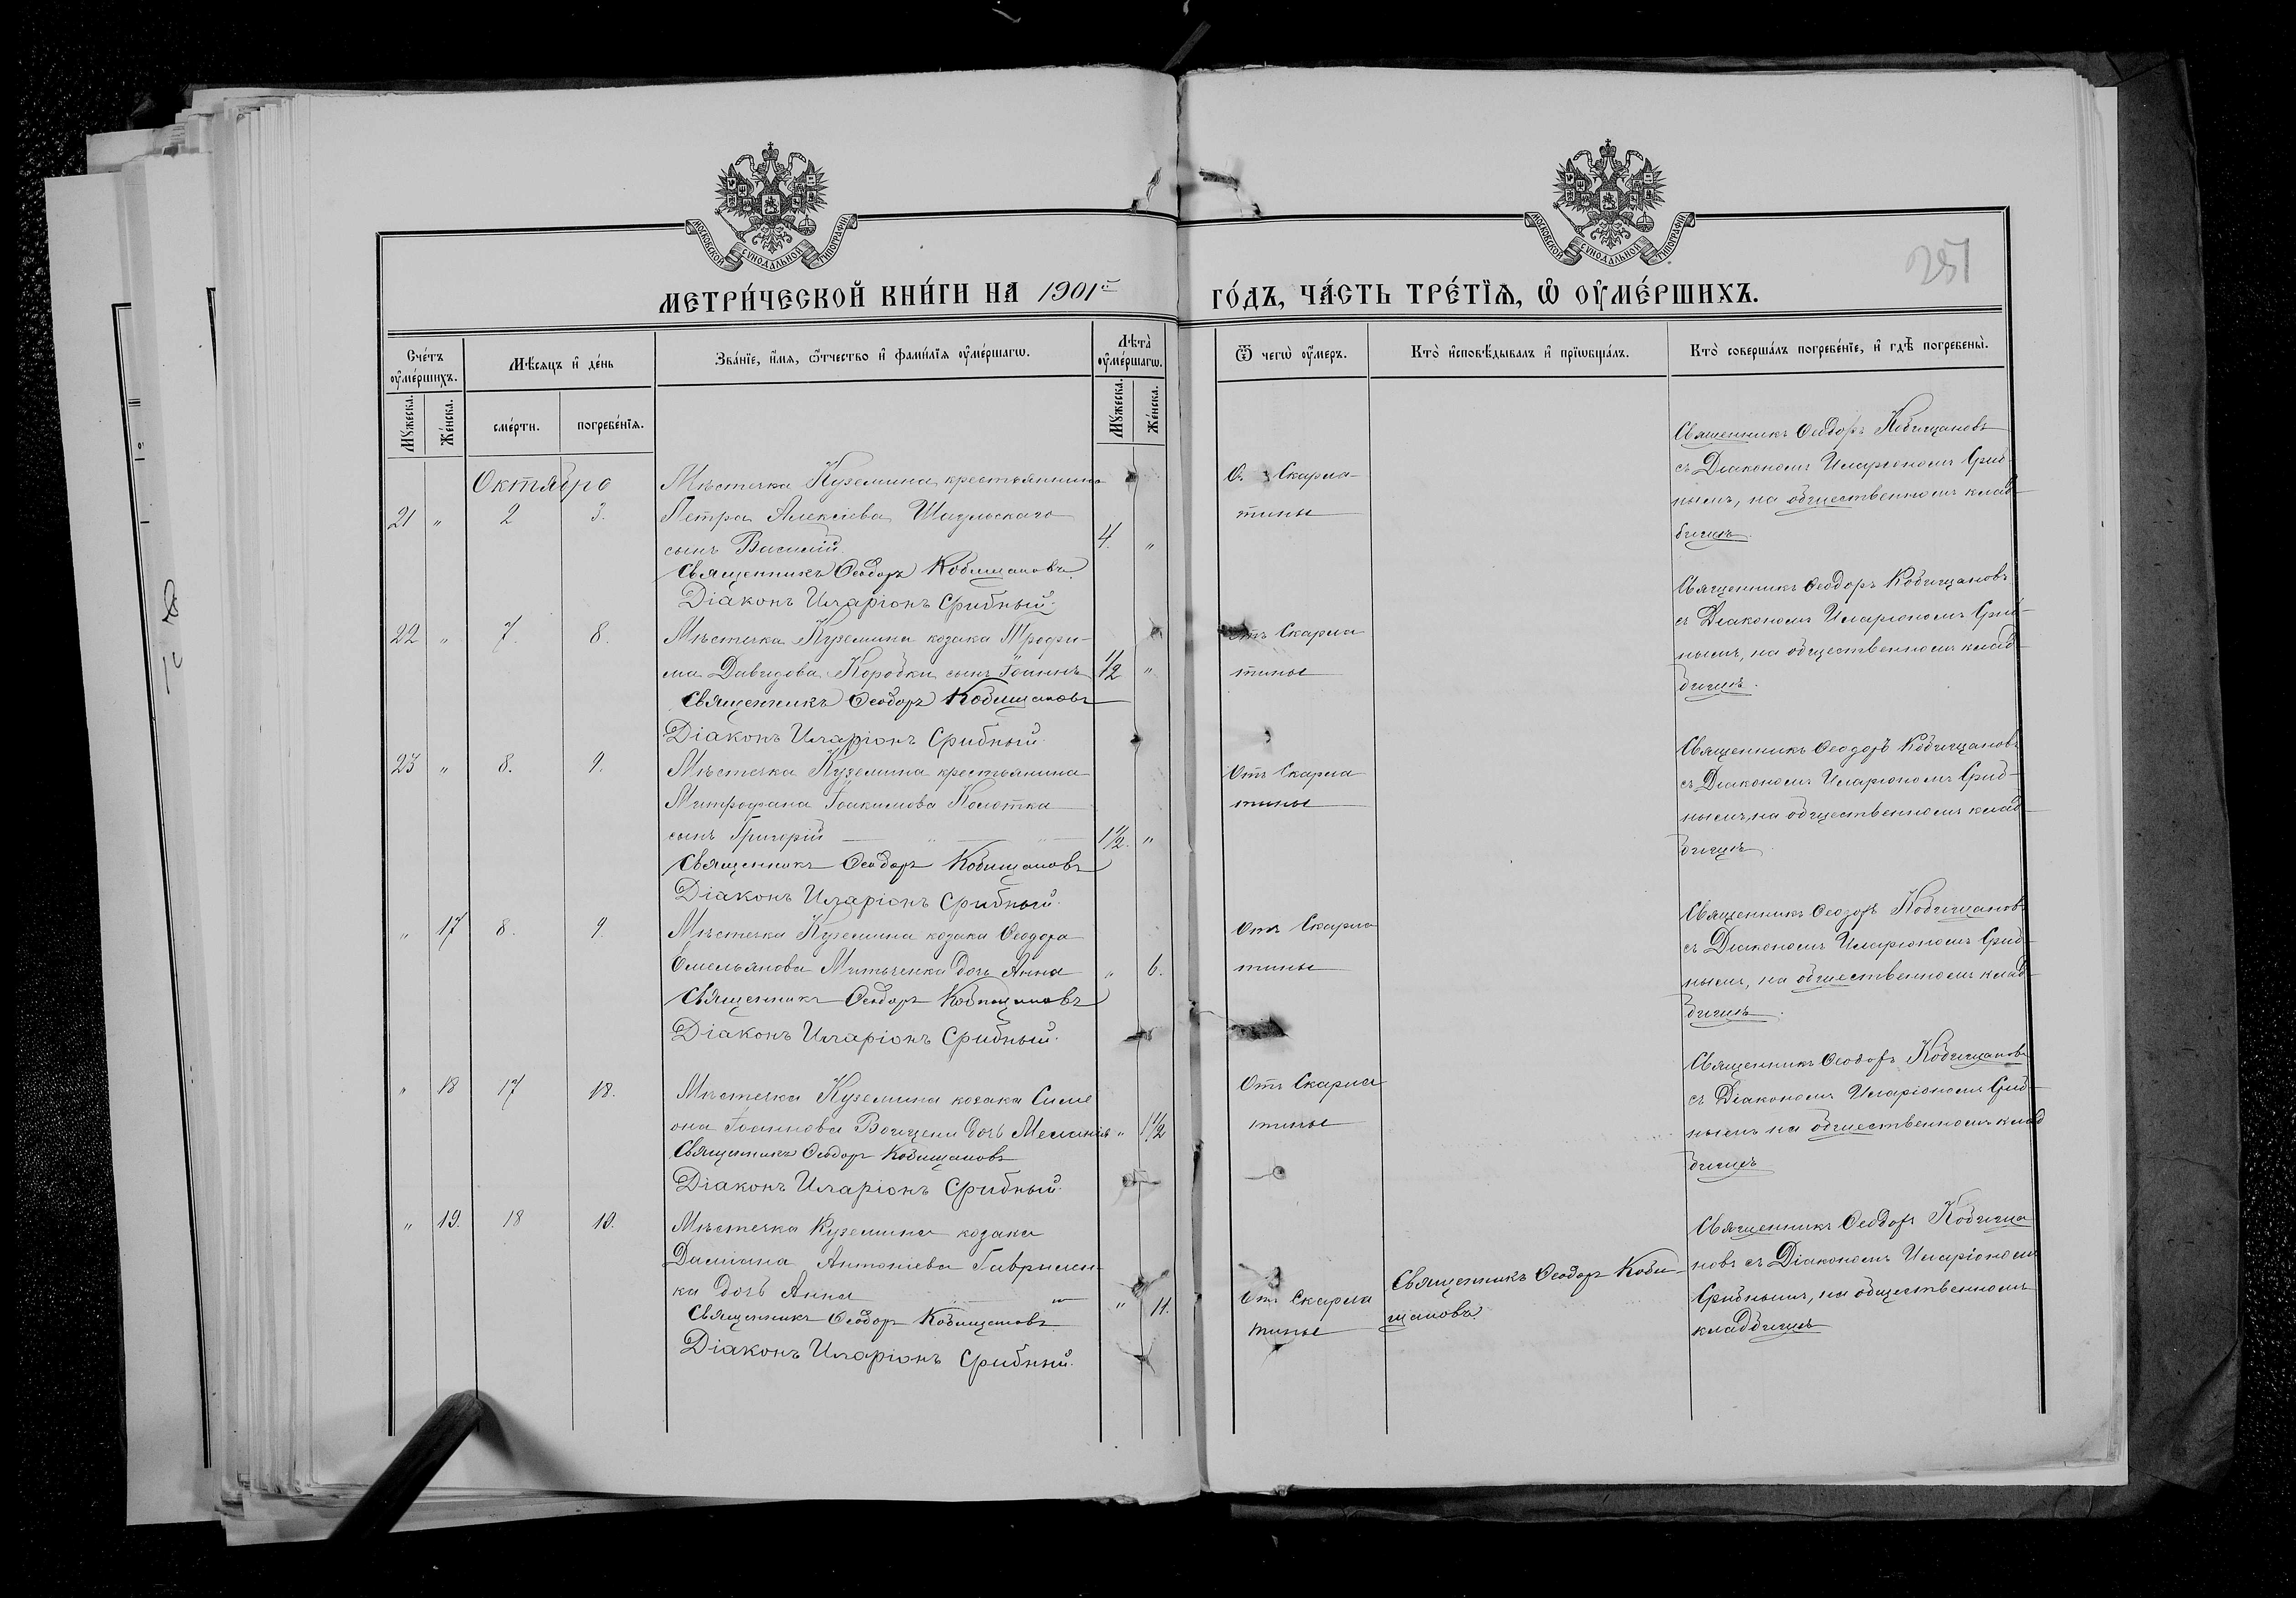 МОСКОВСКОЙ СѴНОДАЛЬНОЙ ТИПОГРАФІИ
МОСКОВСКОЙ СѴНОДАЛЬНОЙ ТИПОГРАФІИ
251
МЕТРИ́ЧЕСКОЙ КНИ́ГИ НА 1901й
ГО́ДЪ, ЧА́СТЬ ТРЕ́ТЇѦ, Ѽ ОУ҆МЕ́РШИХЪ.
Сче́тъ оу҆ме́ршихъ.
Мѣ́сяцъ и҆ де́нь
Зва́нїе, и҆́мѧ, ѻ҆́тчество и҆ фами́лїѧ оу҆ме́ршагѡ.
Лѣта̀ оу҆ме́ршагѡ.
Ѿ чегѡ̀ оу҆́меръ.
Кто̀ и҆сповѣ́дывалъ и҆ прїѡбща́лъ.
Кто̀ соверша́лъ погребе́нїе, и҆ гдѣ̀ погребены̀.
Мꙋ́жеска.
Же́нска.
сме́рти.
погребе́нїѧ.
Мꙋ́жеска.
Же́нска.
Октября
21 " 2 3.
Мѣстечка Куземина крестьянина
Петра Алексіева
сынъ Василій
4. "
Священникъ Ѳеодоръ Кобищановъ
Діаконъ Иларіонъ Срибный.
Скарла-
тины
Священникъ Ѳеодоръ Кобищановъ
съ Діакономъ Иларіономъ Сриб-
нымъ, на общественномъ клад-
бищѣ.
22 " 7. 8.
Мѣстечка Куземина козака Трофи-
ма Давидова Коробки сынъ Іоаннъ
1/2 "
Священникъ Ѳеодоръ Кобищановъ
Діаконъ Иларіонъ Срибный.
Отъ Скарла
тины
Священникъ Ѳеодоръ Кобищановъ
съ Діакономъ Иларіономъ Сриб-
нымъ, на общественномъ клад-
бищѣ.
23 " 8. 9.
Мѣстечка Куземина крестьянина
Митрофана Іоакимова Колотка
сынъ Григорій
1 1/2. "
Священникъ Ѳеодоръ Кобищановъ
Діаконъ Иларіонъ Срибный.
Отъ Скарла
тины
Священникъ Ѳеодоръ Кобищановъ
съ Діакономъ Иларіономъ Сриб-
нымъ, на общественномъ клад-
бищѣ.
" 17 8. 9.
Мѣстечка Куземина козака Ѳеодора
Омельянова Митьченка дочь Анна
" 6.
Священникъ Ѳеодоръ Кобищановъ
Діаконъ Иларіонъ Срибный.
Отъ Скарла
тины
Священникъ Ѳеодоръ Кобищановъ
съ Діакономъ Иларіономъ Сриб-
нымъ, на общественномъ клад-
бищѣ.
" 18 17 18.
Мѣстечка Куземина козака Симе
она Іоаннова дочь Меланія
" 1 1/2
Священникъ Ѳеодоръ Кобищановъ
Діаконъ Иларіонъ Срибный.
Отъ Скарла
тины
Священникъ Ѳеодоръ Кобищановъ
съ Діакономъ Иларіономъ Сриб-
нымъ на общественномъ клад
бищѣ
" 19. 18 19.
Мѣстечка Куземина козака
Даміана Антоніева Гаврилен-
ка дочь Анна
" 11.
Священникъ Ѳеодоръ Кобищановъ
Діаконъ Иларіонъ Срибный.
Отъ Скарла
тины
Священникъ Ѳеодоръ Коби-
щановъ
Священникъ Ѳеодоръ Кобища
новъ съ Діакономъ Иларіономъ
Срибнымъ, на общественномъ
кладбищѣ